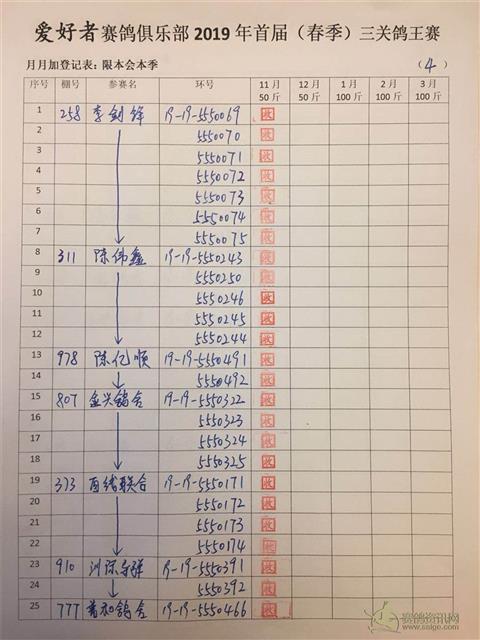 爱好者赛鸽俱乐部2019年首届（春季）三关鸽王赛
月月加登记表：限本会本季 （4）
序号 棚号 参赛名 环号 11月50斤 12月50斤 1月100斤 2月100斤 3月100斤
1 258 李剑锋 19-19-5550069 收
2 5550070 收
3 5550071 收
4 5550072 收
5 5550073 收
6 5550074 收
7 5550075 收
8 311 陈伟鑫 19-19-5550243 收
9 5550250 收
10 5550246 收
11 5550245 收
12 5550244 收
13 978 陈亿顺 19-19-5550491 收
14 5550492 收
15 807 金兴鸽舍 19-19-5550322 收
16 5550323 收
17 5550324 收
18 5550325 收
19 373 联合 19-19-5550171 收
20 5550172 收
21 5550173 收
22 5550174 收
23 910 19-19-5550391 收
24 5550392 收
25 777 鸽舍 19-19-5550466 收
赛鸽资讯网
www.saige.com